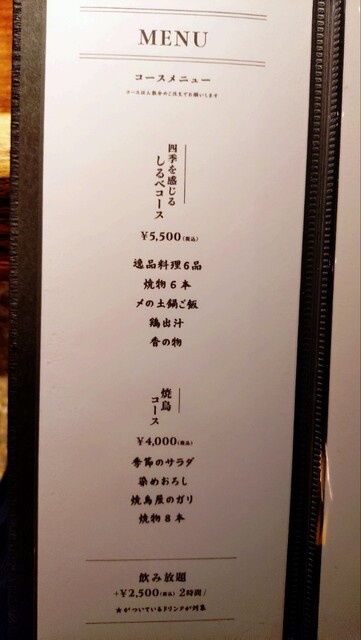 MENU
コースメニュー
コースは人数分のご注文でお願いします
四季を感じる
しるべコース
¥5,500(税込)
逸品料理6品
焼物6本
〆の土鍋ご飯
鶏出汁
香の物
焼鳥
コース
¥4,000(税込)
季節のサラダ
染めおろし
焼鳥屋のガリ
焼物8本
飲み放題
+¥2,500(税込) 2時間/
★がついているドリンクが対象